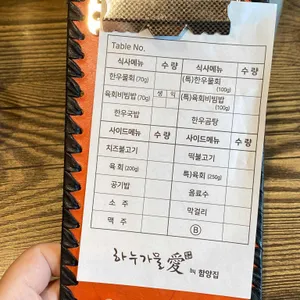 Table No.
식사메뉴 수 량 식사메뉴 수 량
한우물회(70g) (특)한우물회(100g)
육회비빔밥(70g) 생 익 (특)육회비빔밥(100g)
한우국밥 한우곰탕
사이드메뉴 수 량 사이드메뉴 수 량
치즈불고기 떡불고기
육 회(200g) 특)육회(250g)
공기밥 음료수
소 주 막걸리
맥 주 B
하누가물愛 by 함양집